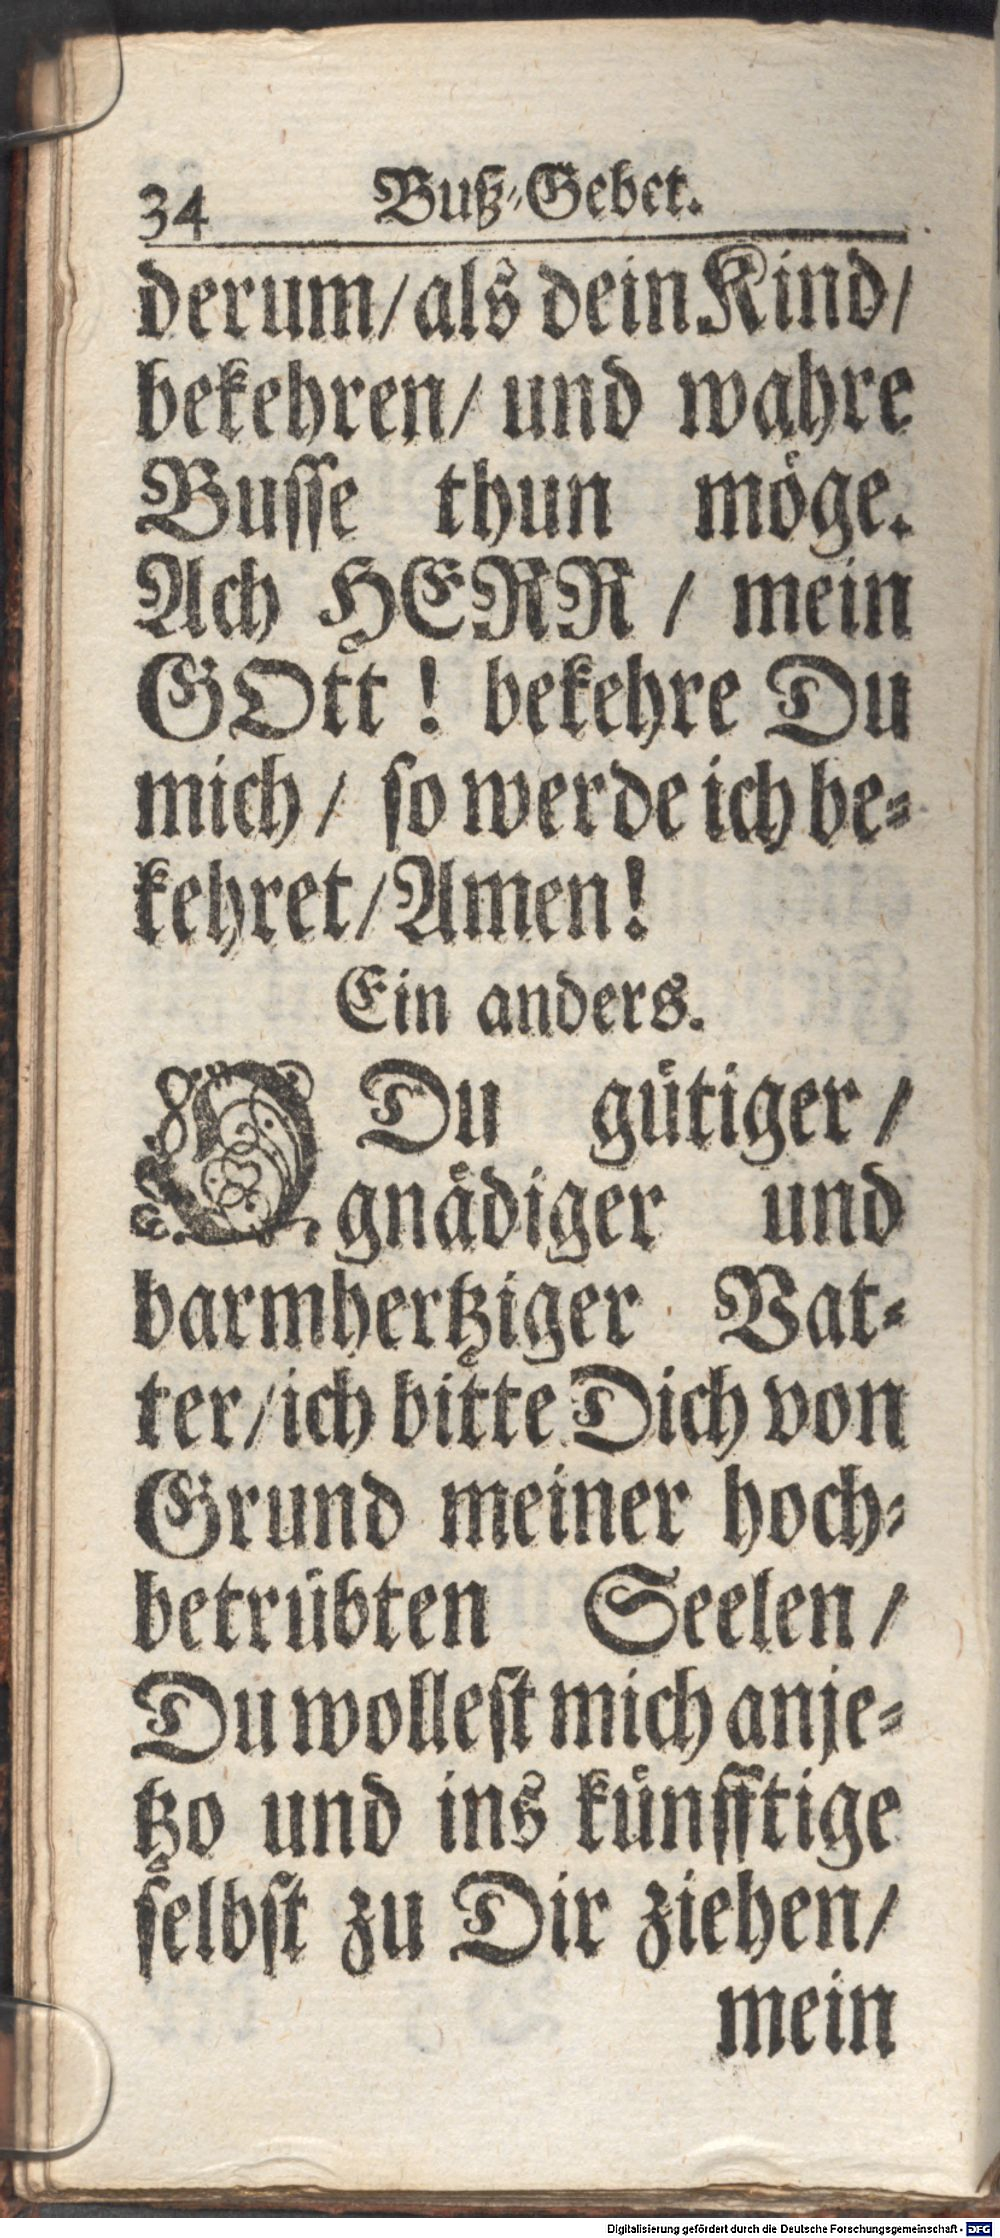 34 Buß-Gebet.
derum/ als dein Kind/
bekehren/ und wahre
Busse thun möge.
Ach HERR / mein
GOtt ! bekehre Du
mich / so werde ich be-
kehret/ Amen!
Ein anders.
O Du gütiger /
gnädiger und
barmhertziger Vat-
ter/ ich bitte Dich von
Grund meiner hoch-
betrübten Seelen /
Du wollest mich anje-
tzo und ins künfftige
selbst zu Dir ziehen/
mein
Digitalisierung gefördert durch die Deutsche Forschungsgemeinschaft - DFG